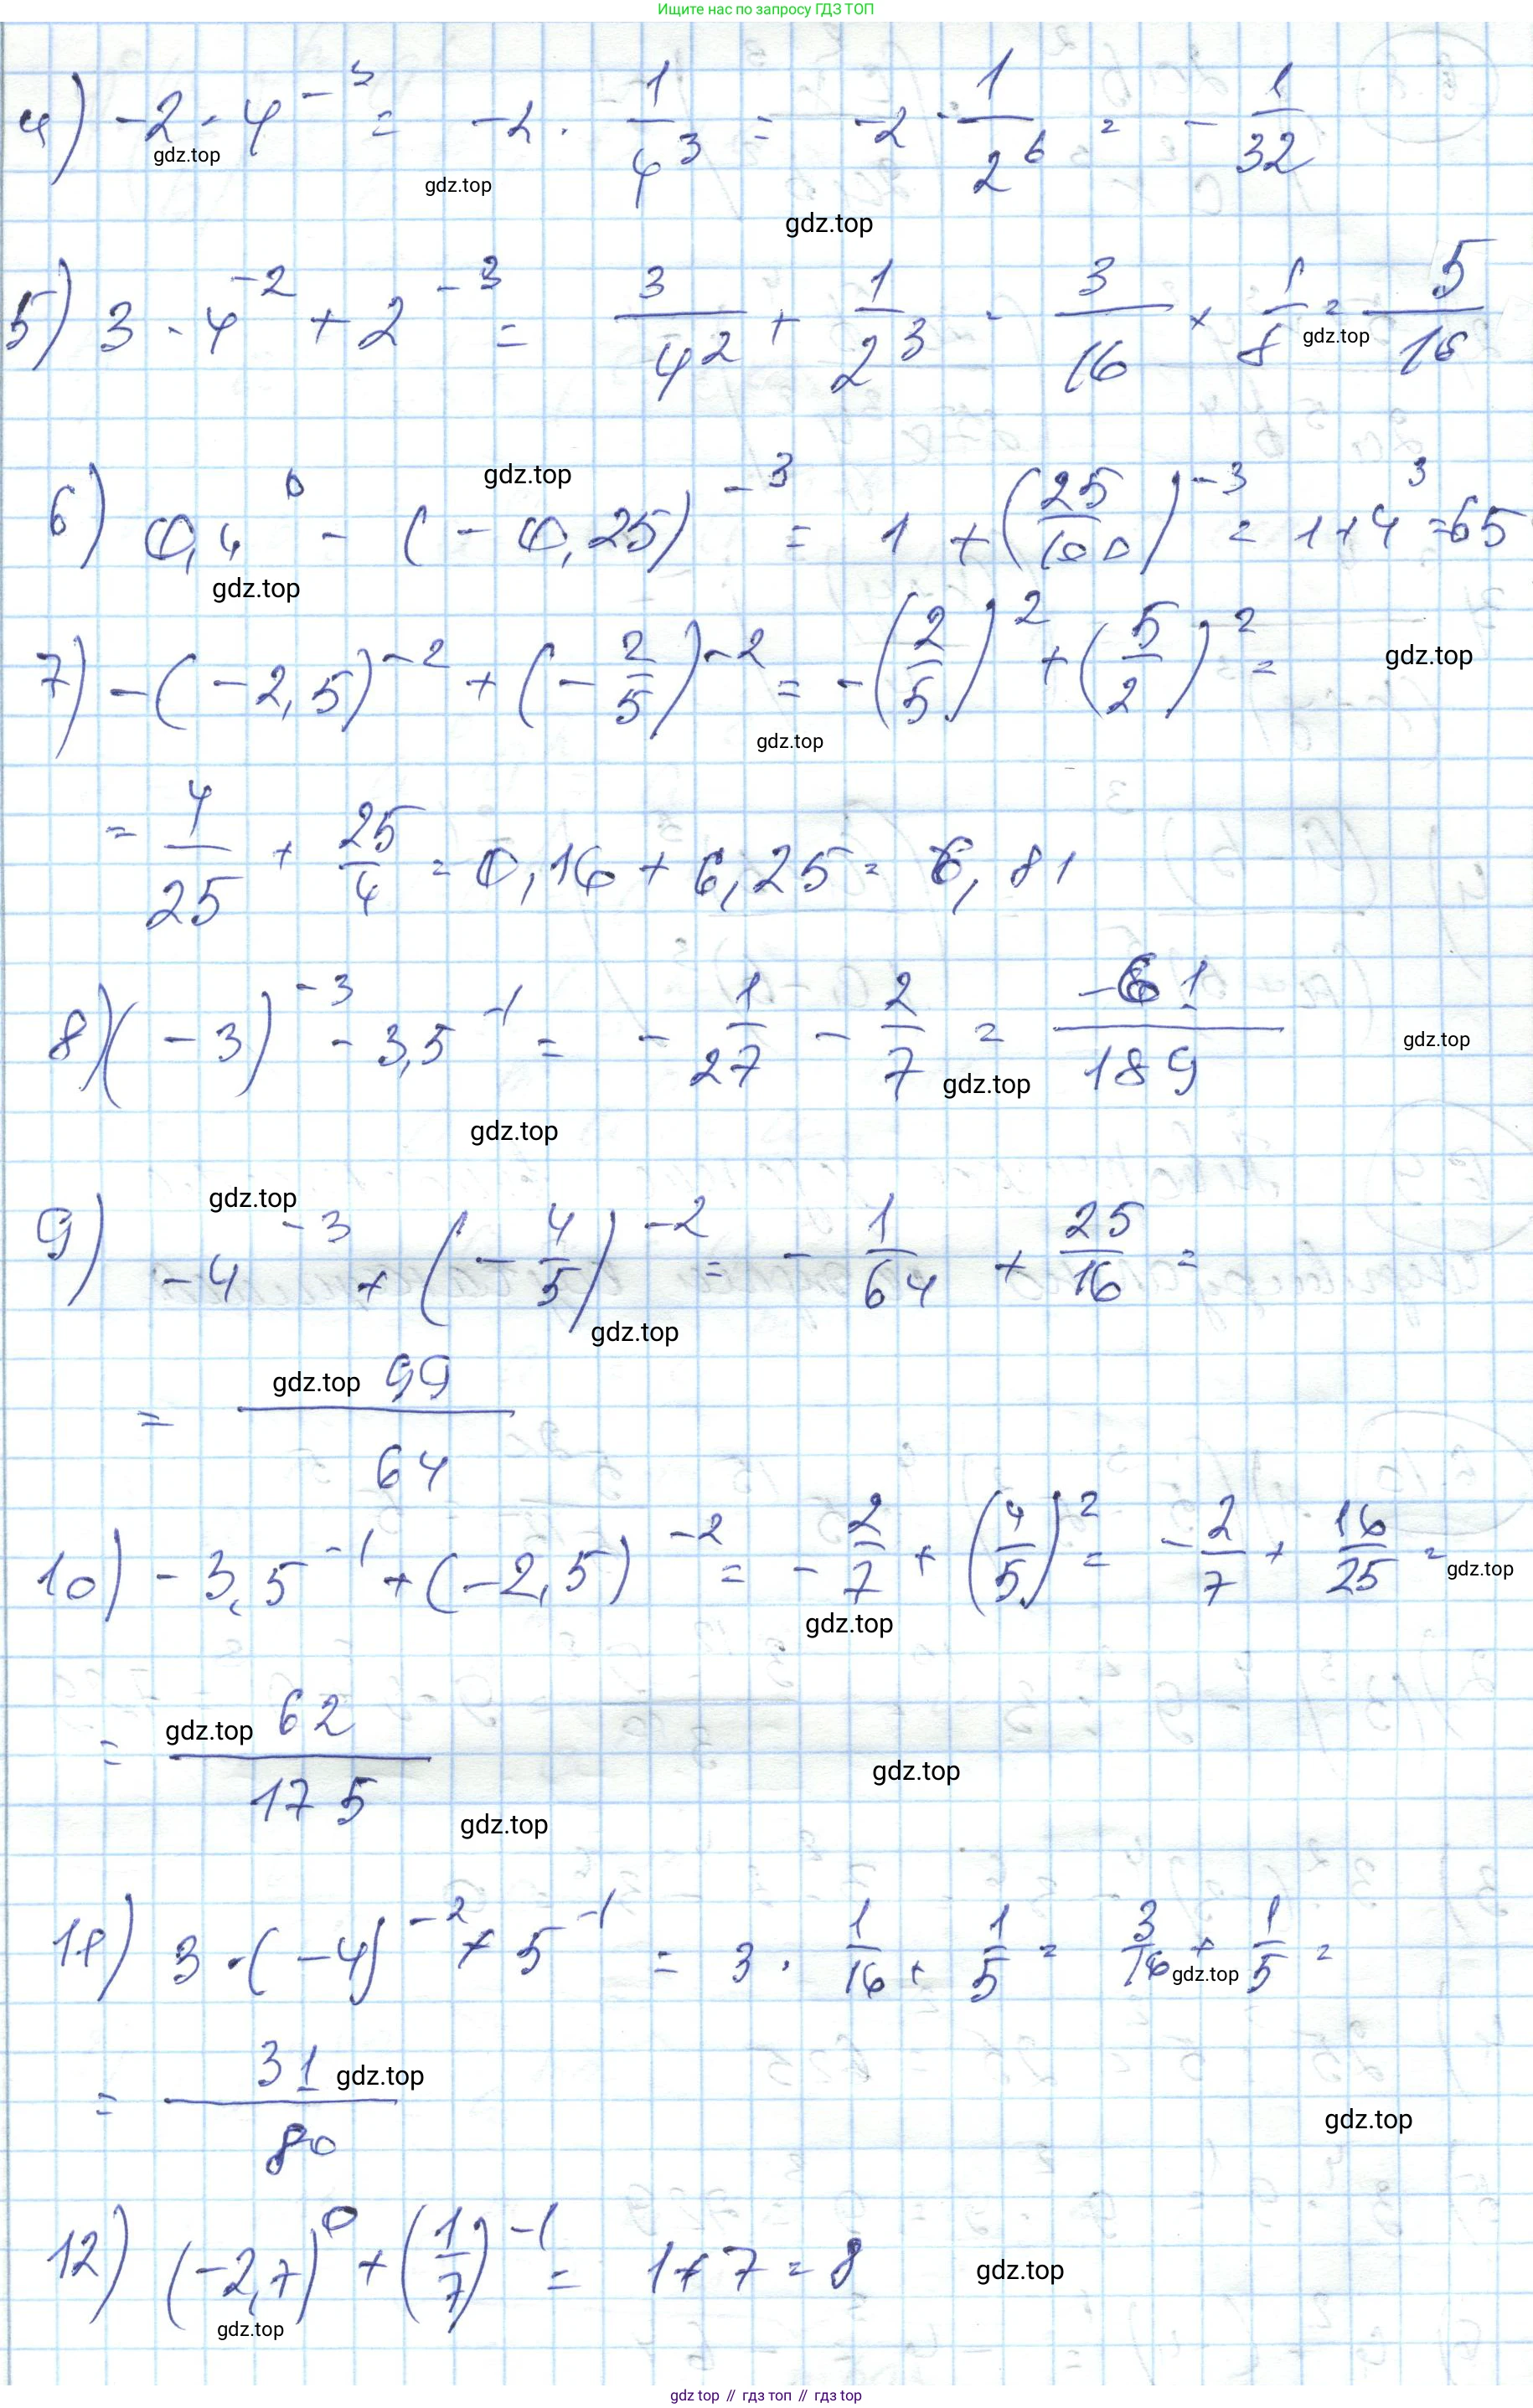 Ищите нас по запросу ГДЗ ТОП
4) -2 · 4^{-3} = -2 · 1/4^3 = -2 · 1/2^6 = - 1/32
gdz.top gdz.top gdz.top
5) 3 · 4^{-2} + 2^{-3} = 3/4^2 + 1/2^3 = 3/16 + 1/8 = 5/16
gdz.top
gdz.top
6) 0,4^0 - (-0,25)^{-3} = 1 + (25/100)^{-3} = 1 + 4^3 = 65
gdz.top
7) -(-2,5)^{-2} + (-2/5)^{-2} = -(2/5)^2 + (5/2)^2 =
gdz.top gdz.top
= 4/25 + 25/4 = 0,16 + 6,25 = 6,81
8) (-3)^{-3} - 3,5^{-1} = - 1/27 - 2/7 = -61/189
gdz.top gdz.top
gdz.top
gdz.top
9) -4^{-3} + (-4/5)^{-2} = - 1/64 + 25/16 =
gdz.top
= 99/64
gdz.top
10) -3,5^{-1} + (-2,5)^{-2} = - 2/7 + (4/5)^2 = - 2/7 + 16/25 =
gdz.top gdz.top
= 62/175
gdz.top gdz.top
gdz.top
11) 3 · (-4)^{-2} + 5^{-1} = 3 · 1/16 + 1/5 = 3/16 + 1/5 =
gdz.top
= 31/80
gdz.top
gdz.top
12) (-2,7)^0 + (1/7)^{-1} = 1 + 7 = 8
gdz.top
gdz.top
gdz top // гдз топ // гдз top